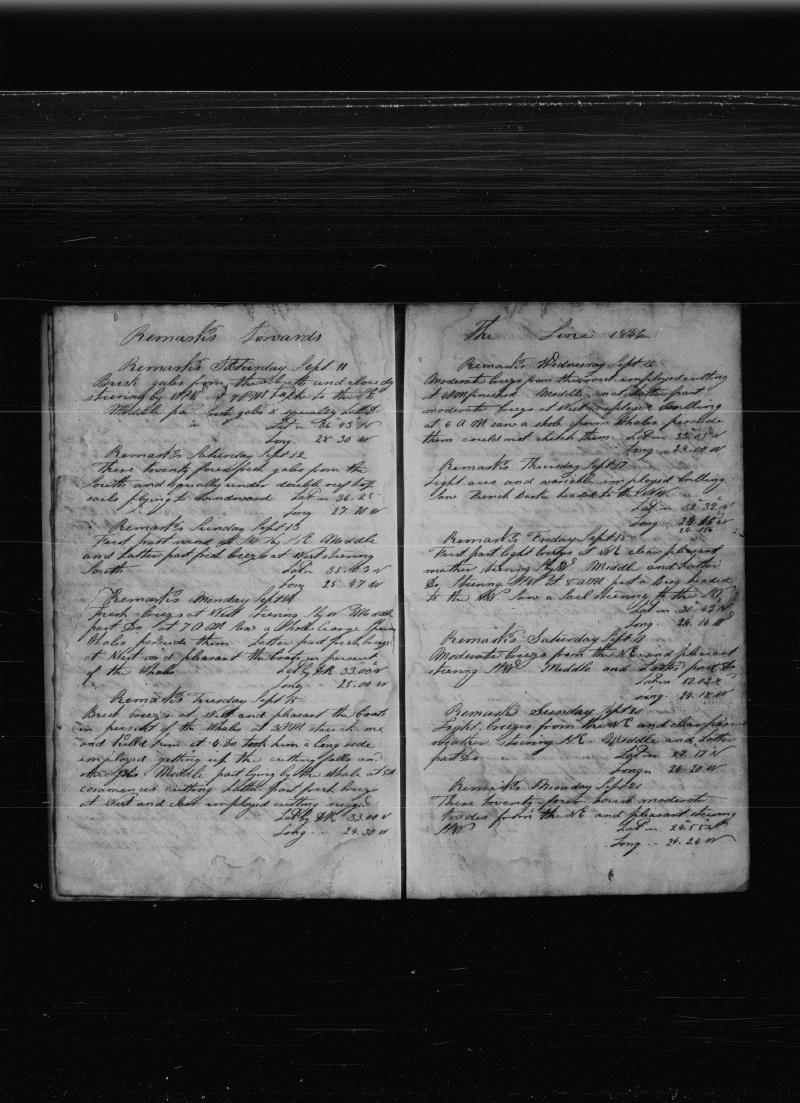 Remarks towards
Remarks Saturday Sept 11
Brisk gales from the South and cloudy
stearing by at 7 PM to the NE
Middle part gales & squally Latter Do
Lat in 36 45 N
Long 28 30 W
Remarks Saturday Sept 12
These twenty four fresh gales from the
South and squally under double reef top
sails plying to windward Lat in 36.2
Long 27.20 W
Remarks Sunday Sept 13
First part wind at Middle
and Latter part fresh breeze at West stearing
South Lat in 35.03 N
Long 25.47 W
Remarks Monday Sept 14
fresh breeze at West stearing Middle
part Do at 7 AM saw a large Sperm
Whale persude them Latter part fresh breeze
at West and pleasant the boats in persuit
of the Whale Lat by DR 33.00 N
Long 25.00 W
Remarks Tuesday Sept 15
Brisk breeze at West and pleasant the boats
in persuit of the Whales at 3 PM struck one
and killed him at 4.30 took him a long side
employed getting up the cutting falls and
other jobs Middle part lying by the whale at
commenced cutting Latter part fresh breeze
at West and clear employed cutting
Lat by DR 33.00 N
Long 24.30 W
The Line 1846
Remarks Wednesday Sept 16
Moderate breeze from the west employed cutting
at finished Middle and Latter part
moderate breeze at West employed boiling
at 6 AM saw a shole sperm Whales persude
them could not ketch them Lat in 33.15 N
Long 24.00 W
Remarks Thursday Sept 17
Light airs and variable employed boiling
saw French Bark headed to the NW
Lat in 32.32 N
Long 24.16 W
Remarks Friday Sept 18
First part light breeze at NE clear pleasant
weather stearing Middle and Latter
Do stearing at 8 AM a Brig headed
to the NW saw a sail stearing to the
Lat in 30.43 N
Long 24.14 W
Remarks Saturday Sept 19
Moderate breeze from the NE and pleasant
stearing Middle and Latter part Do
Lat in
Long 24.18 W
Remarks Sunday Sept 20
Light breezes from the NE and clear pleasant
weather stearing Middle and Latter
part Do Lat in 27.17 N
Long 24.20 W
Remarks Monday Sept 21
These twenty four hours moderate
trades from the NE and pleasant stearing
Lat in 24.55 N
Long 24.24 W